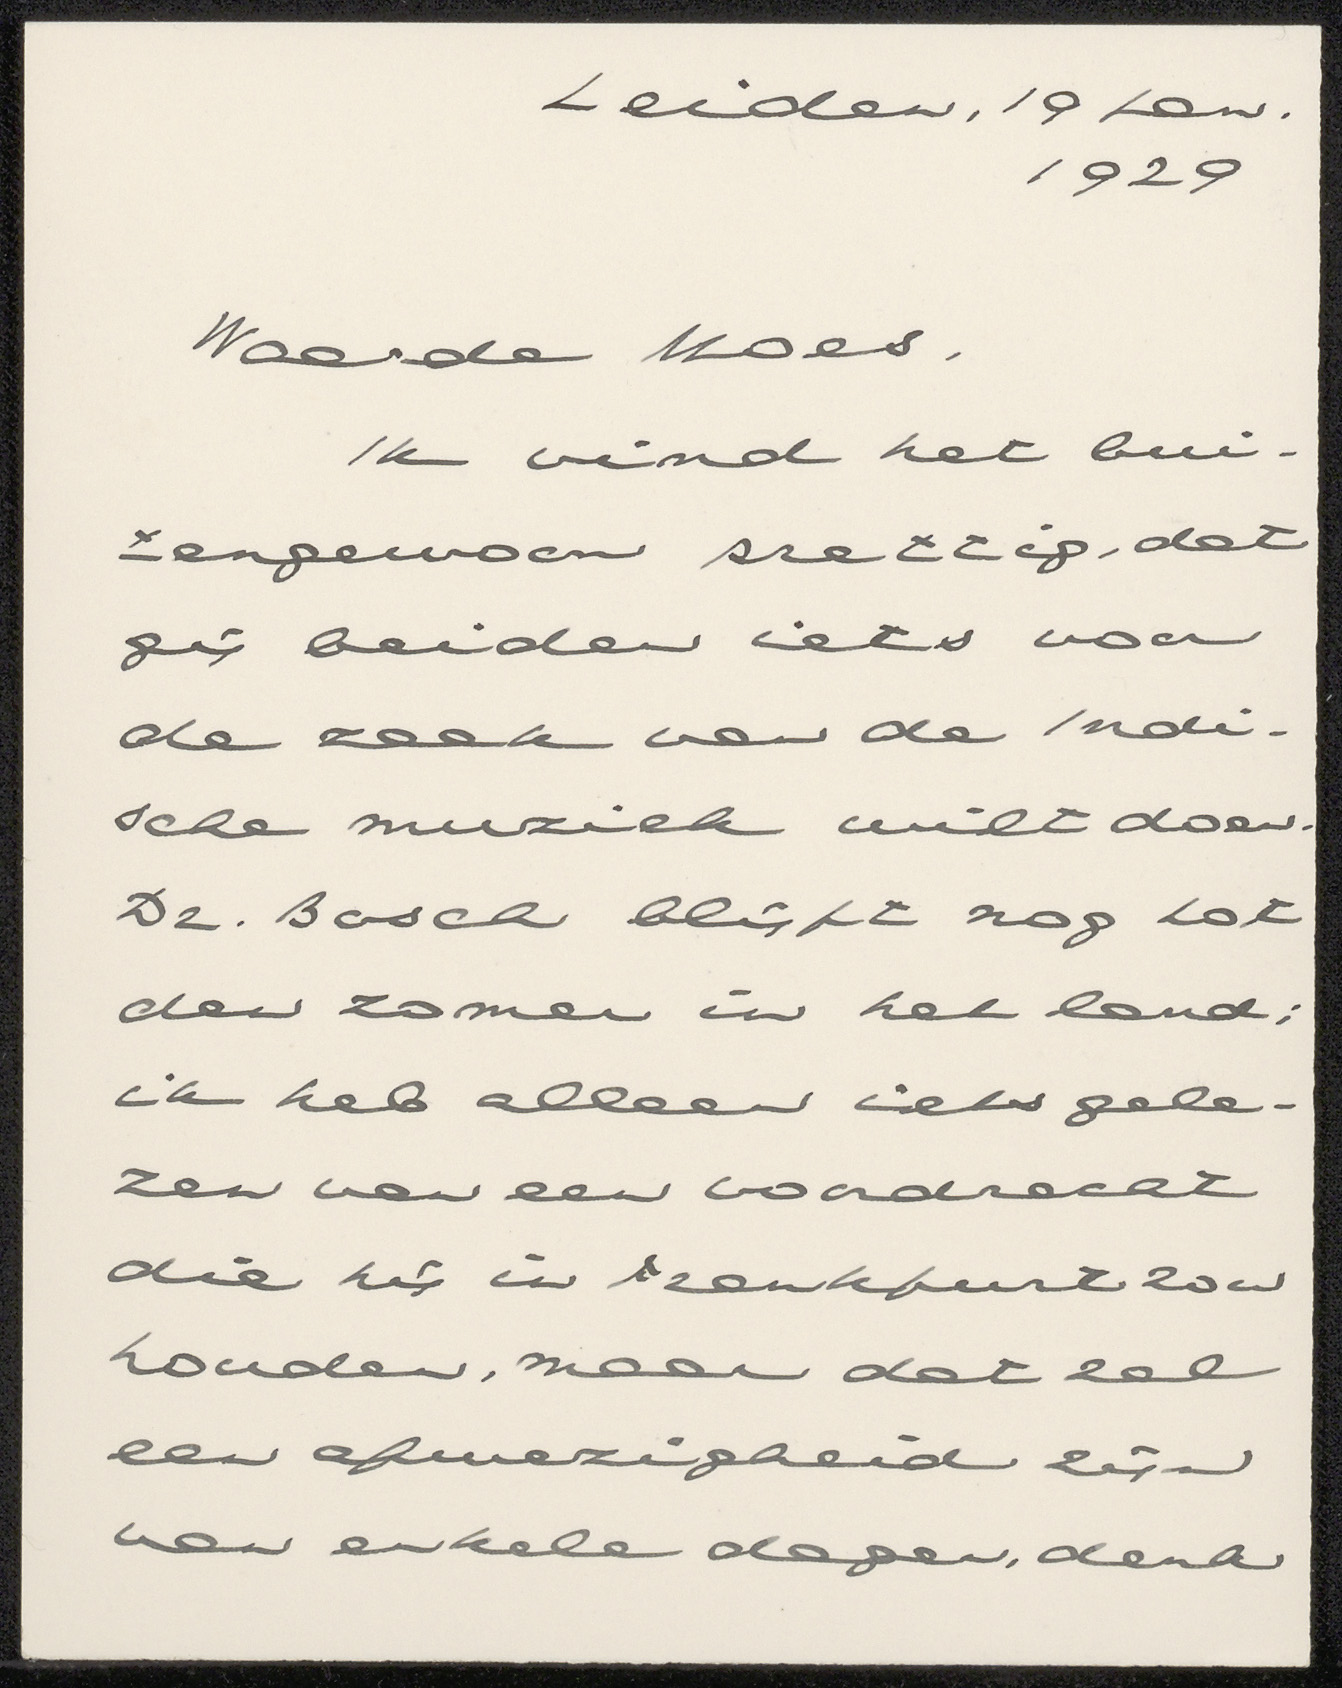 Leiden, 19 Jan.
1929
Waarde Moes,
Ik vind het bui-
tengewoon prettig, dat
gij beiden iets voor
de zaak van de Indi-
sche muziek wilt doen.
Dr. Bosch blijft nog tot
den zomer in het land;
ik heb alleen iets gele-
zen van een voordracht
die hij in Frankfurt zou
houden, maar dat zal
een afwezigheid zijn
van enkele dagen, denk